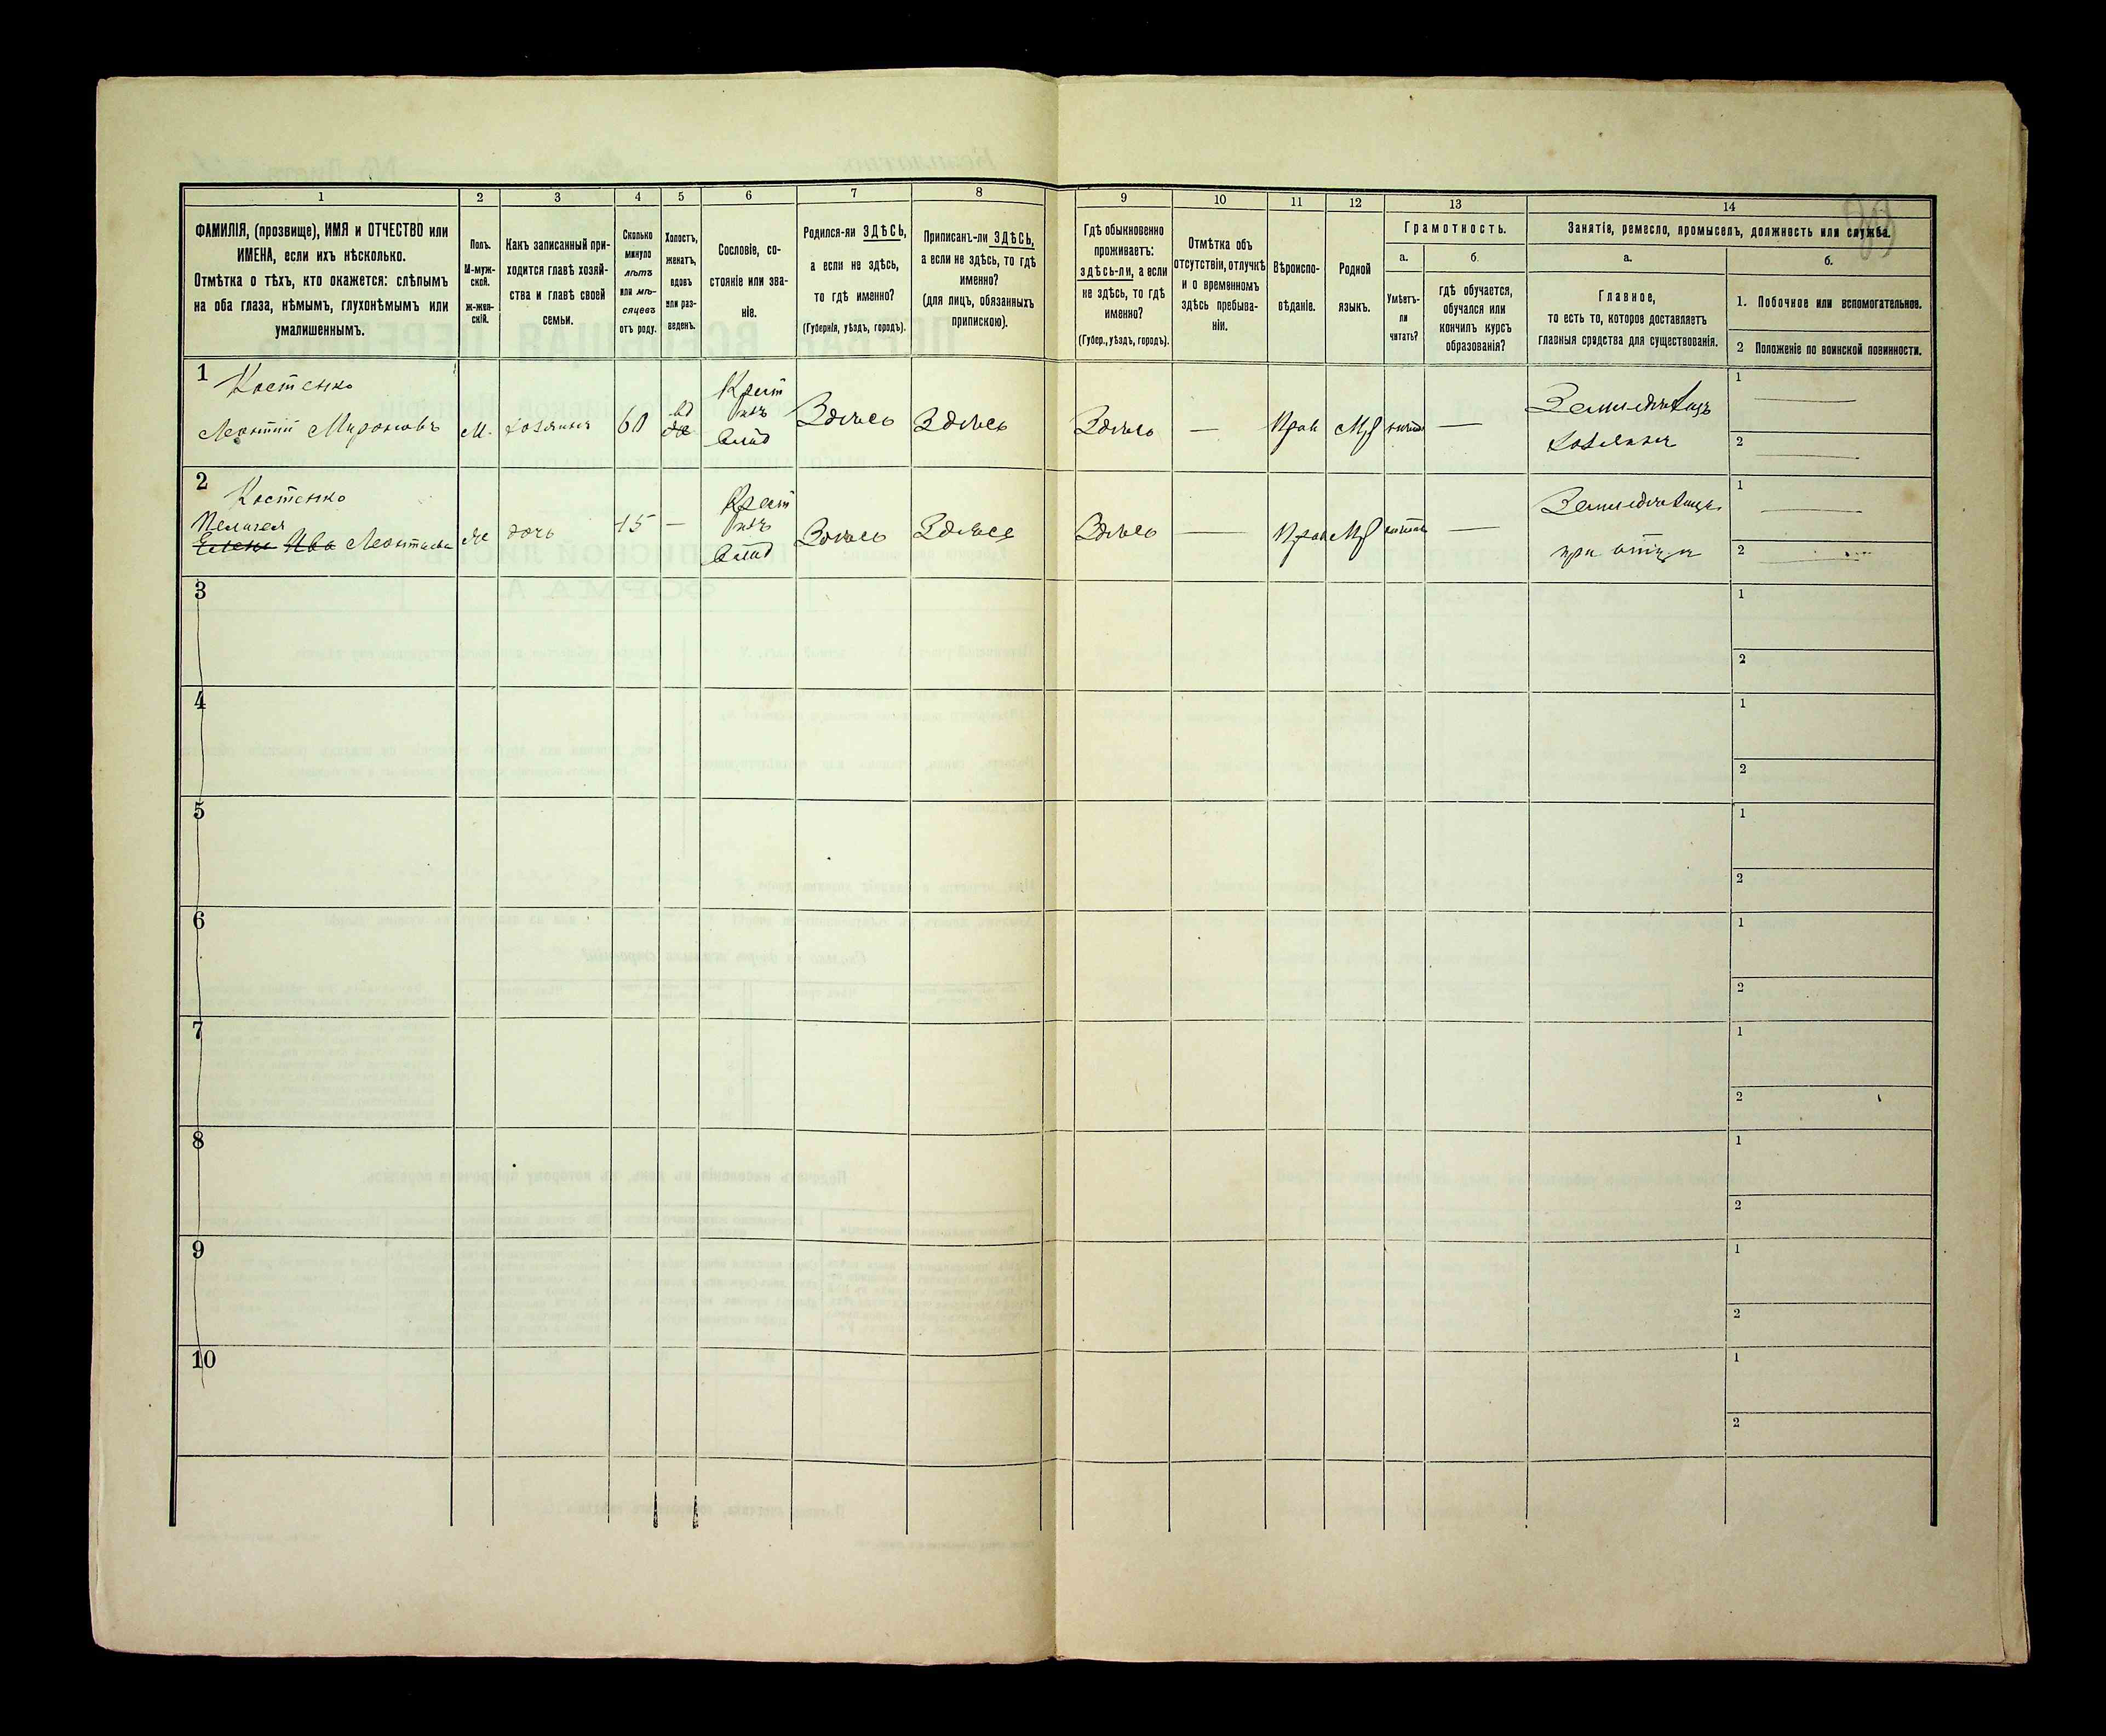 1
2
3
4
5
6
7
8
ФАМИЛІЯ, (прозвище), ИМЯ и ОТЧЕСТВО или
ИМЕНА, если ихъ нѣсколько.
Отмѣтка о тѣхъ, кто окажется: слѣпымъ
на оба глаза, нѣмымъ, глухонѣмымъ или
умалишеннымъ.
Полъ.
М-муж-
ской.
ж-жен-
скій.
Какъ записанный при-
ходится главѣ хозяй-
ства и главѣ своей
семьи.
Сколько
минуло
лѣтъ
или мѣ-
сяцевъ
отъ роду.
Холостъ,
женатъ,
вдовъ
или раз-
веденъ.
Сословіе, со-
стояніе или зва-
ніе.
Родился-ли ЗДѢСЬ,
а если не здѣсь,
то гдѣ именно?
(Губернія, уѣздъ, городъ).
Приписанъ-ли ЗДѢСЬ,
а если не здѣсь, то гдѣ
именно?
(для лицъ, обязанныхъ
припискою).
9
10
11
12
13
14
Гдѣ обыкновенно
проживаетъ:
здѣсь-ли, а если
не здѣсь, то гдѣ
именно?
(Губер., уѣздъ, городъ).
Отмѣтка объ
отсутствіи, отлучкѣ
и о временномъ
здѣсь пребыва-
ніи.
Вѣроиспо-
вѣданіе.
Родной
языкъ.
Грамотность.
а.
б.
Умѣетъ-
ли
читать?
гдѣ обучается,
обучался или
кончилъ курсъ
образованія?
Занятія, ремесло, промыселъ, должность или служба.
а.
б.
Главное,
то есть то, которое доставляетъ
главныя средства для существованія.
1. Побочное или вспомогательное.
2 Положеніе по воинской повинности.
1
Костенко
Леонтій Мироновъ
М.
хозяинъ
60
вд
Крест
изъ
влад
Здѣсь
Здѣсь
Здѣсь
—
Прав
Мр
—
Земледѣлецъ
хозяинъ
1
2
2
Костенко
Пелагея
Елена Ива Леонтьева
Ж
дочь
15
—
Крест
изъ
влад
Здѣсь
Здѣсь
Здѣсь
—
Прав
Мр
—
Земледѣлецъ
при отцѣ
1
2
3
1
2
4
1
2
5
1
2
6
1
2
7
1
2
8
1
2
9
1
2
10
1
2